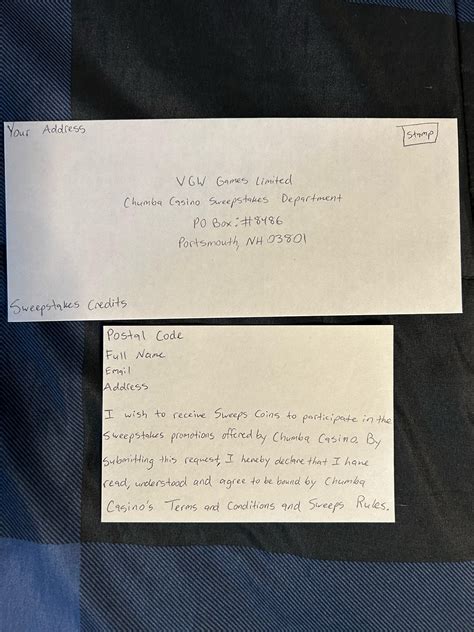 Your Address
Stamp
VGW Games Limited
Chumba Casino Sweepstakes Department
PO Box: #8486
Portsmouth, NH 03801
Sweepstakes Credits
Postal Code
Full Name
Email
Address
I wish to receive Sweeps Coins to participate in the
sweepstakes promotions offered by Chumba Casino. By
submitting this request, I hereby declare that I have
read, understood and agree to be bound by Chumba
Casino's Terms and Conditions and Sweeps Rules.